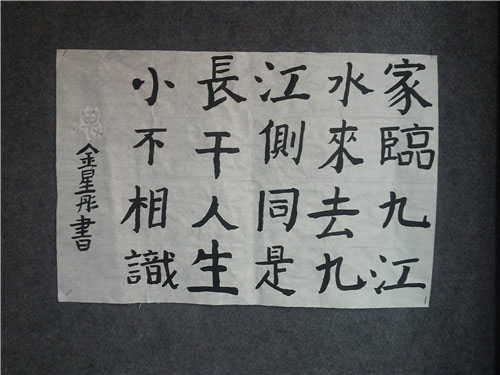 家臨九江
水來去九
江側同是
長干人生
小不相識
金星彤書